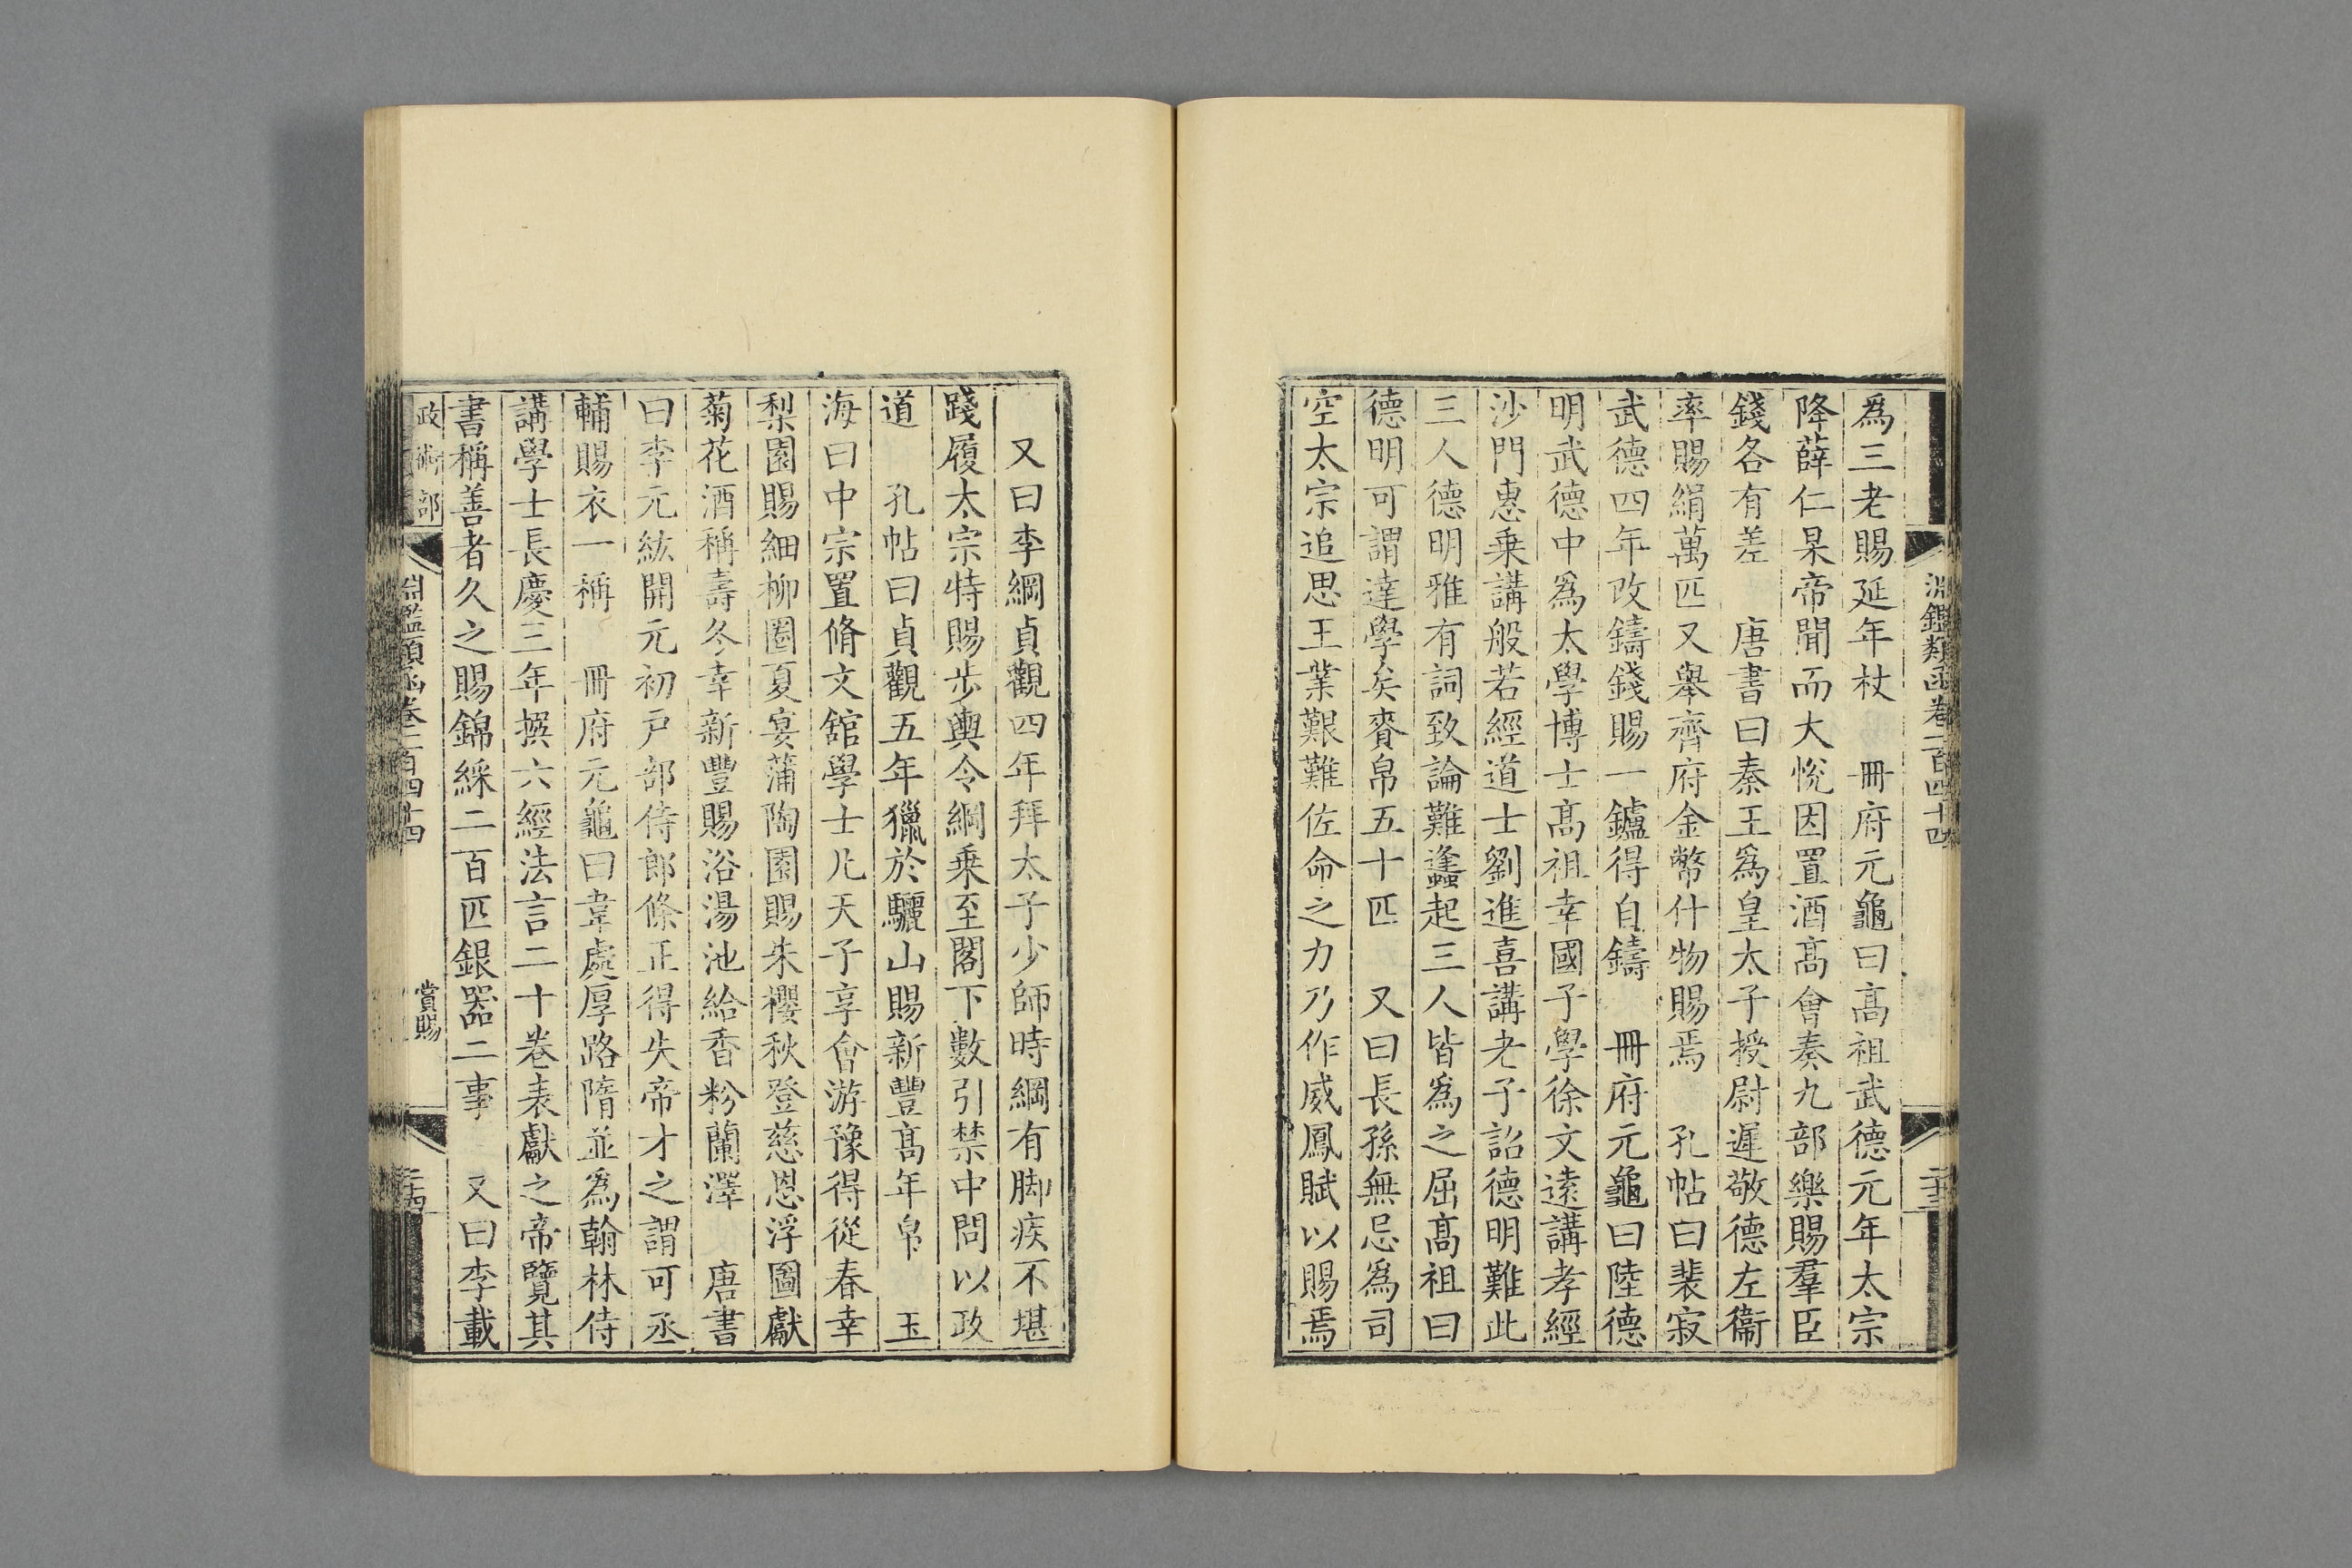 淵鑑類函卷二百四十四
二十三
爲三老賜延年杖　冊府元龜曰髙祖武德元年太宗
降薛仁杲帝聞而大悅因置酒髙會奏九部樂賜羣臣
錢各有差　唐書曰秦王爲皇太子授尉遲敬德左衞
率賜絹萬匹又舉齊府金幣什物賜焉　孔帖曰裴寂
武德四年改鑄錢賜一鑪得自鑄　冊府元龜曰陸德
明武德中爲太學博士髙祖幸國子學徐文遠講孝經
沙門惠乗講般若經道士劉進喜講老子詔德明難此
三人德明雅有詞致論難蠭起三人皆爲之屈髙祖曰
德明可謂達學矣賚帛五十匹　又曰長孫無忌爲司
空太宗追思王業艱難佐命之力乃作威鳳賦以賜焉
又曰李綱貞觀四年拜太子少師時綱有脚疾不堪
踐履太宗特賜步輿令綱乗至閣下數引禁中問以政
道　孔帖曰貞觀五年獵於驪山賜新豐髙年帛　玉
海曰中宗置脩文舘學士凡天子享會游豫得從春幸
梨園賜細柳圈夏宴蒲陶園賜朱櫻秋登慈恩浮圖獻
菊花酒稱壽冬幸新豐賜浴湯池給香粉蘭澤　唐書
曰李元紘開元初戸部侍郎條正得失帝才之謂可丞
輔賜衣一稱　冊府元龜曰韋處厚路隋並爲翰林侍
講學士長慶三年撰六經法言二十卷表獻之帝覽其
書稱善者久之賜錦綵二百匹銀器二事　又曰李載
政術部
淵鑑類函卷二百四十四
賞賜
二十四